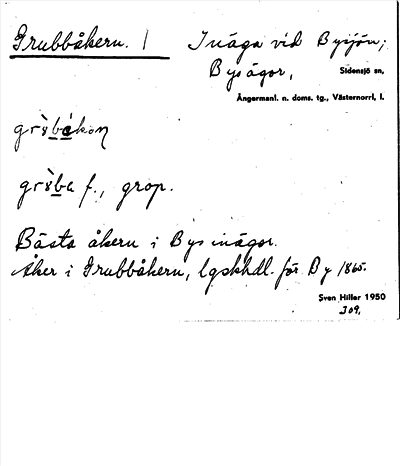 Grubbåkern. / Inäga vid Bysjön;
Bysägor, Sidensjö sn,
Ångermanl. n. doms. tg., Västernorrl. l.
f., grop.
Bästa åkern i Bys inägor.
Åker i Grubbåkern, lgskhdl. för By 1865.
Sven Hillar 1950
309.